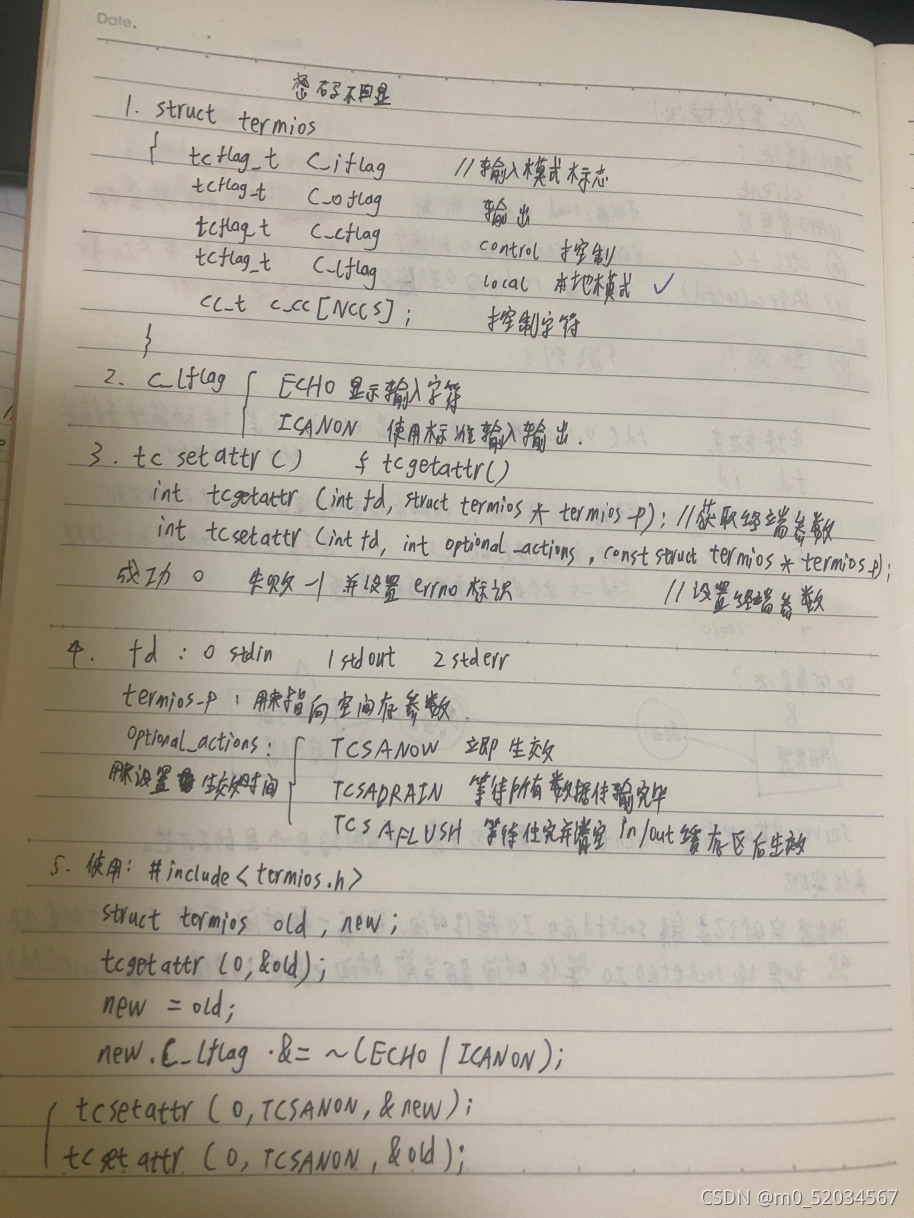 Date.
密码不回显
1. struct termios
{ tcflag_t c_iflag //输入模式标志
tcflag_t c_oflag 输出
tcflag_t c_cflag control 控制
tcflag_t c_lflag local 本地模式 ✓
cc_t c_cc[NCCS]; 控制字符
}
2. c_lflag { ECHO 显示输入字符
ICANON 使用标准输入输出.
3. tcsetattr() 与 tcgetattr()
int tcgetattr (int fd, struct termios * termios_p); //获取终端参数
int tcsetattr (int fd, int optional_actions, const struct termios * termios_p);
成功 0 失败 -1 并设置 errno 标识 //设置终端参数
4. fd : 0 stdin 1 stdout 2 stderr
termios_p : 用来指向空间存参数.
optional_actions: { TCSANOW 立即生效
用来设置生效时间 TCSADRAIN 等待所有数据传输完毕
TCSAFLUSH 等待任完并清空 in/out 缓存区后生效
5. 使用: #include<termios.h>
struct termios old, new;
tcgetattr (0, &old);
new = old;
new.c_lflag ·&= ~(ECHO | ICANON);
tcsetattr (0, TCSANON, &new);
tcsetattr (0, TCSANON, &old);
CSDN @m0_52034567